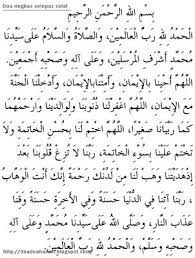 Doa ringkas selepas solat
بِسْمِ اللهِ الرَّحْمٰنِ الرَّحِيْمِ
اَلْحَمْدُ لِلّٰهِ رَبِّ الْعَالَمِيْنَ، وَالصَّلَاةُ وَالسَّلَامُ عَلَى سَيِّدِنَا
مُحَمَّدٍ أَشْرَفِ الْمُرْسَلِيْنَ، وَعَلَى آلِهِ وَصَحْبِهِ أَجْمَعِيْنَ.
اَللّٰهُمَّ أَحْيِنَا بِالإِيْمَانِ، وَأَمِتْنَا بِالإِيْمَانِ، وَأَدْخِلْنَا الْجَنَّةَ
مَعَ الإِيْمَانِ، اَللّٰهُمَّ اغْفِرْ لَنَا ذُنُوْبَنَا وَلِوَالِدِيْنَا وَارْحَمْهُمَا
كَمَا رَبَّيَانَا صَغِيْرًا، اَللّٰهُمَّ اخْتِمْ لَنَا بِحُسْنِ الْخَاتِمَةِ وَلَا
تَخْتِمْ عَلَيْنَا بِسُوْءِ الْخَاتِمَةِ، رَبَّنَا لَا تُزِغْ قُلُوْبَنَا بَعْدَ
إِذْ هَدَيْتَنَا وَهَبْ لَنَا مِنْ لَدُنْكَ رَحْمَةً إِنَّكَ أَنْتَ
الْوَهَّابُ، رَبَّنَا آتِنَا فِي الدُّنْيَا حَسَنَةً وَفِي الْآخِرَةِ حَسَنَةً وَقِنَا
عَذَابَ النَّارِ، وَصَلَّى اللهُ عَلَى سَيِّدِنَا مُحَمَّدٍ وَعَلَى آلِهِ
وَصَحْبِهِ وَسَلَّمَ، وَالْحَمْدُ لِلّٰهِ رَبِّ الْعَالَمِيْنَ.